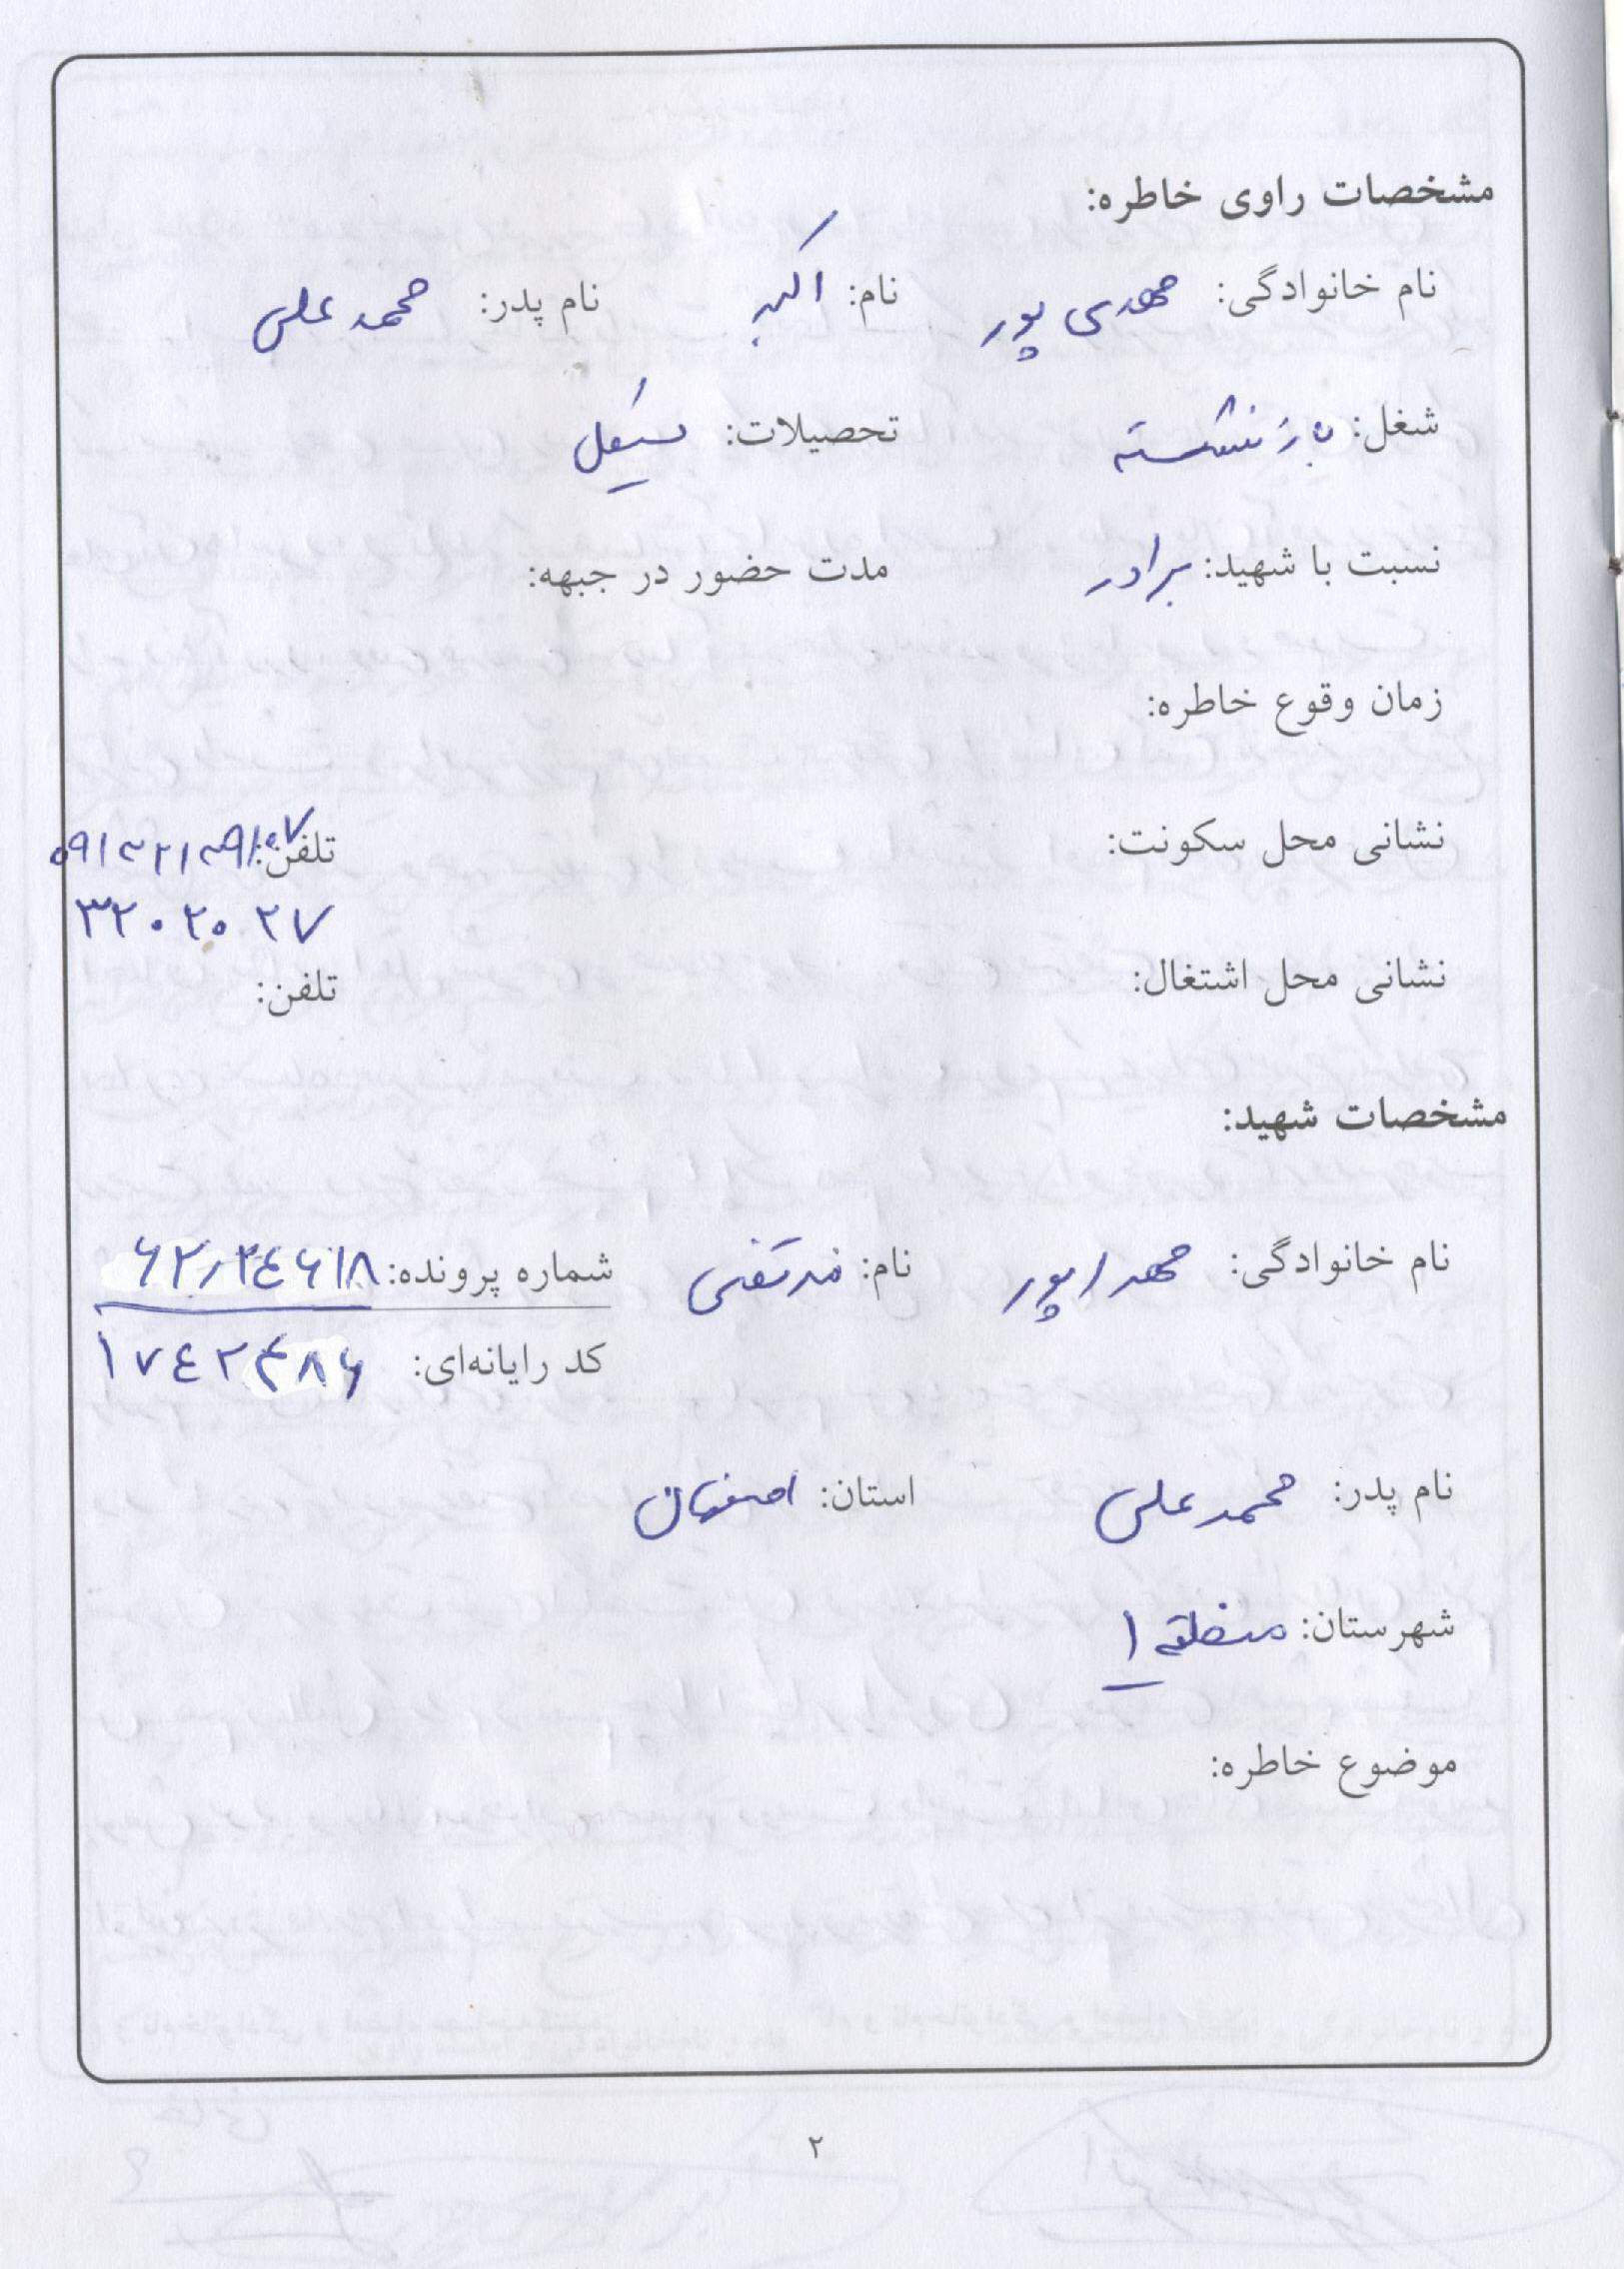 مشخصات راوی خاطره:
نام خانوادگی: مهدی پور نام: اکبر نام پدر: محمد علی
شغل: بازنشسته تحصیلات: سیکل
نسبت با شهید: برادر مدت حضور در جبهه:
زمان وقوع خاطره:
نشانی محل سکونت: تلفن:
۳۲۰۲۰۲۷
نشانی محل اشتغال: تلفن:
مشخصات شهید:
نام خانوادگی: مهدی پور نام: مرتضی شماره پرونده:
کد رایانه‌ای: ۱۷۴۲۴۸۶
نام پدر: محمد علی استان: اصفهان
شهرستان: منطقه ۱
موضوع خاطره:
۲